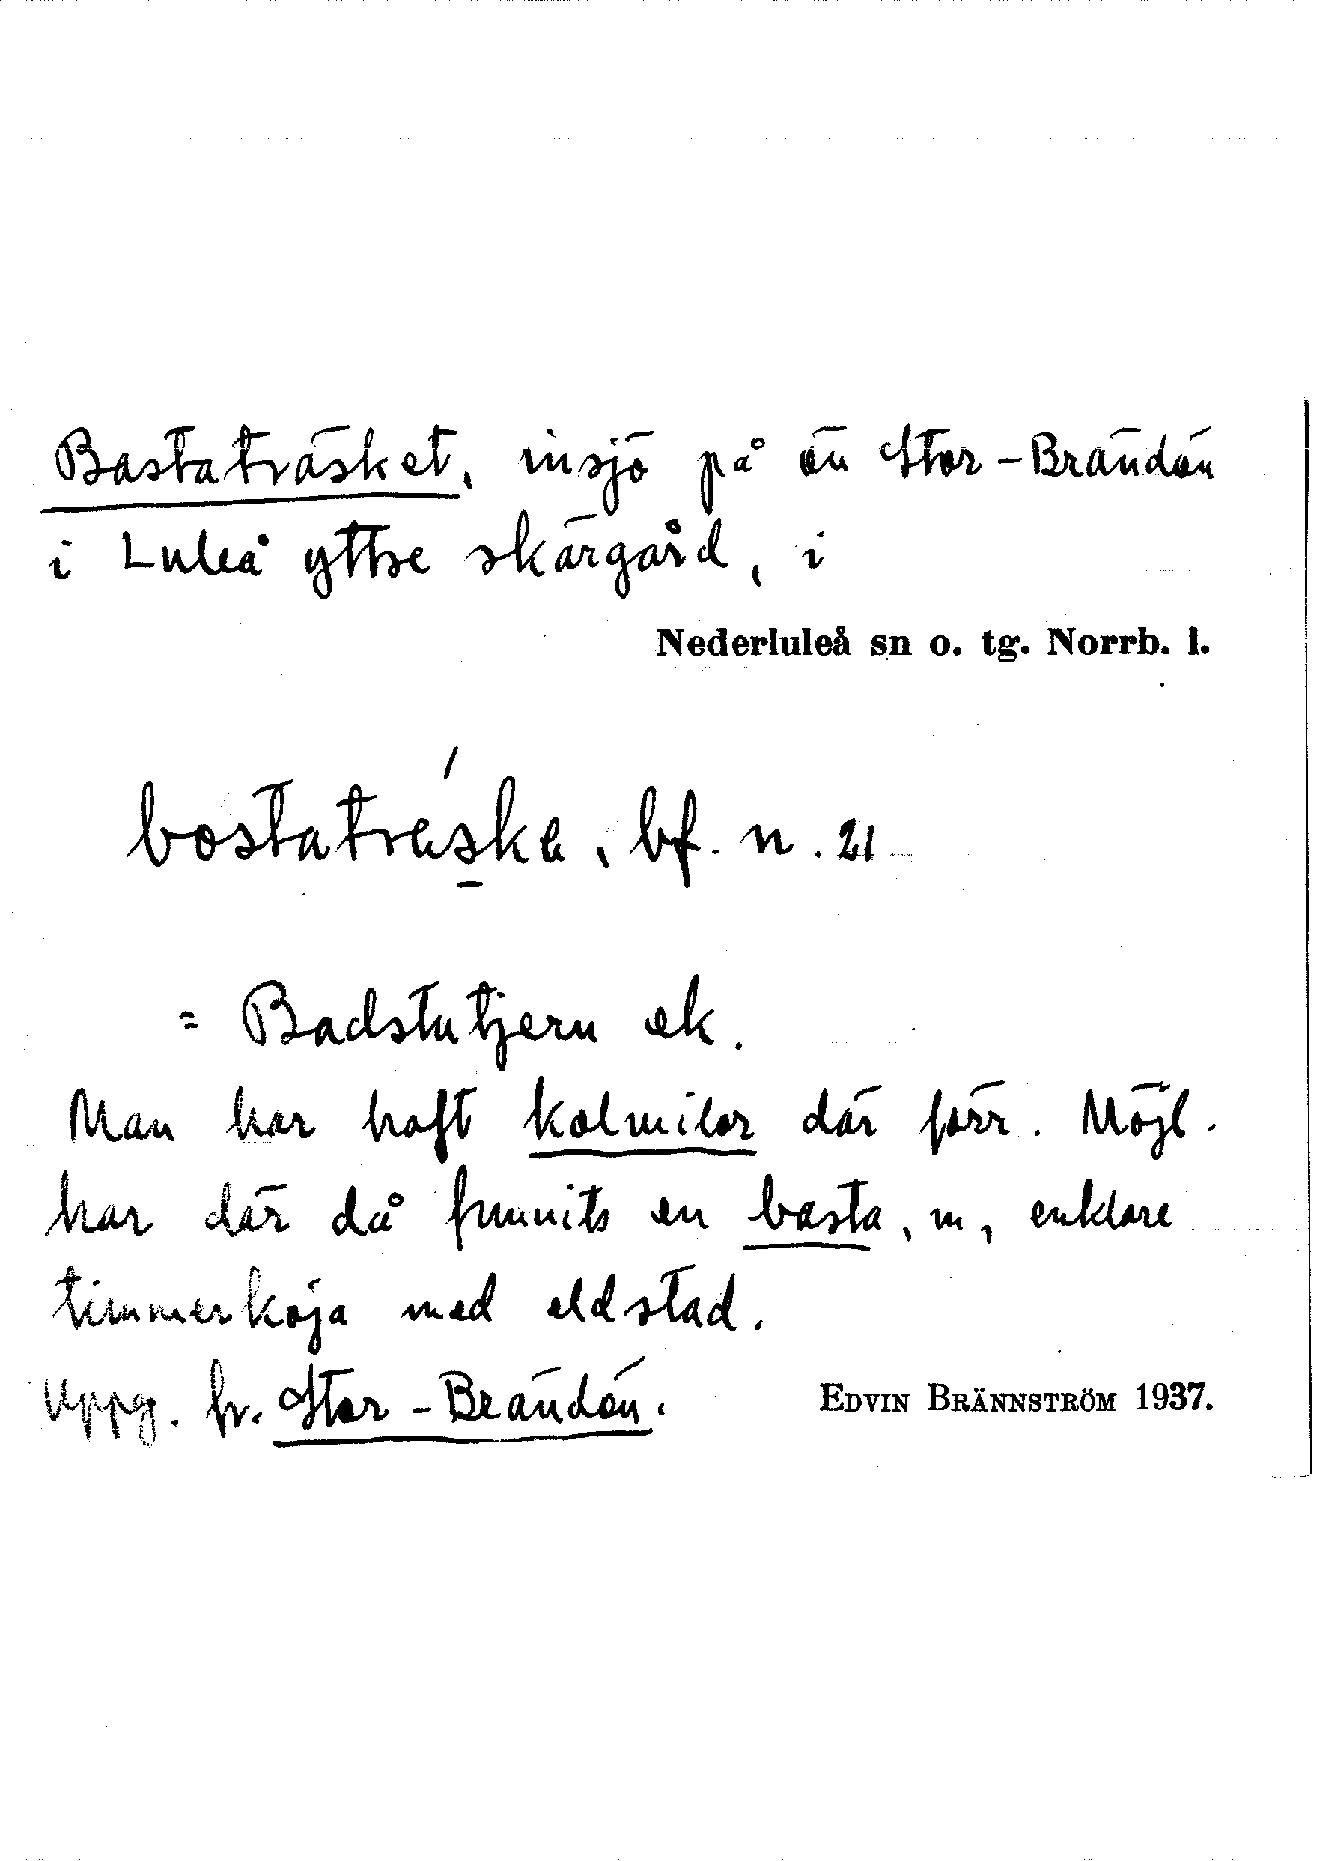 Bastaträsket, insjö på ön Stor-Brändön
i Luleå yttre skärgård, i
Nederluleå sn o. tg. Norrb. l.
bostatráska, bf. n. 21
= Badstutjern ek.
Man har haft kolmilor där förr. Möjl.
har där då funnits en basta, m, enklare
timmerkoja med eldstad.
Uppg. fr. Stor-Brändön.
EDVIN BRÄNNSTRÖM 1937.